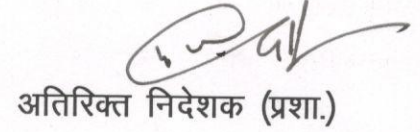 अतिरिक्त निदेशक (प्रशा.)